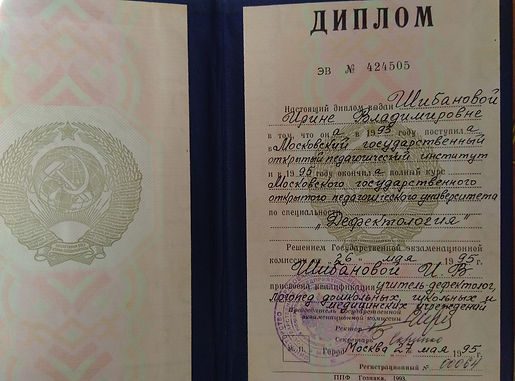 ДИПЛОМ
ЭВ № 424505
Настоящий диплом выдан Шибановой
Ирине Владимировне
в том, что она в 1993 году поступила в
Московский государственный
открытый педагогический институт
и в 1995 году окончила полный курс
Московского государственного
открытого педагогического университета
по специальности
"Дефектология"
Решением Государственной экзаменационной
комиссии от "26" мая 1995
Шибановой И. В
присвоена квалификация учитель дефектолог,
логопед дошкольных, школьных и
медицинских учреждений
Председатель Государственной
экзаменационной комиссии
Ректор
Секретарь
М. П. Город Москва 27 мая 1995
Регистрационный №
ППФ Гознака. 1993.